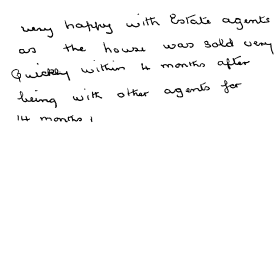 very happy with Estate agents
as the house was sold very
Quickly within 4 months after
being with other agents for
14 months,